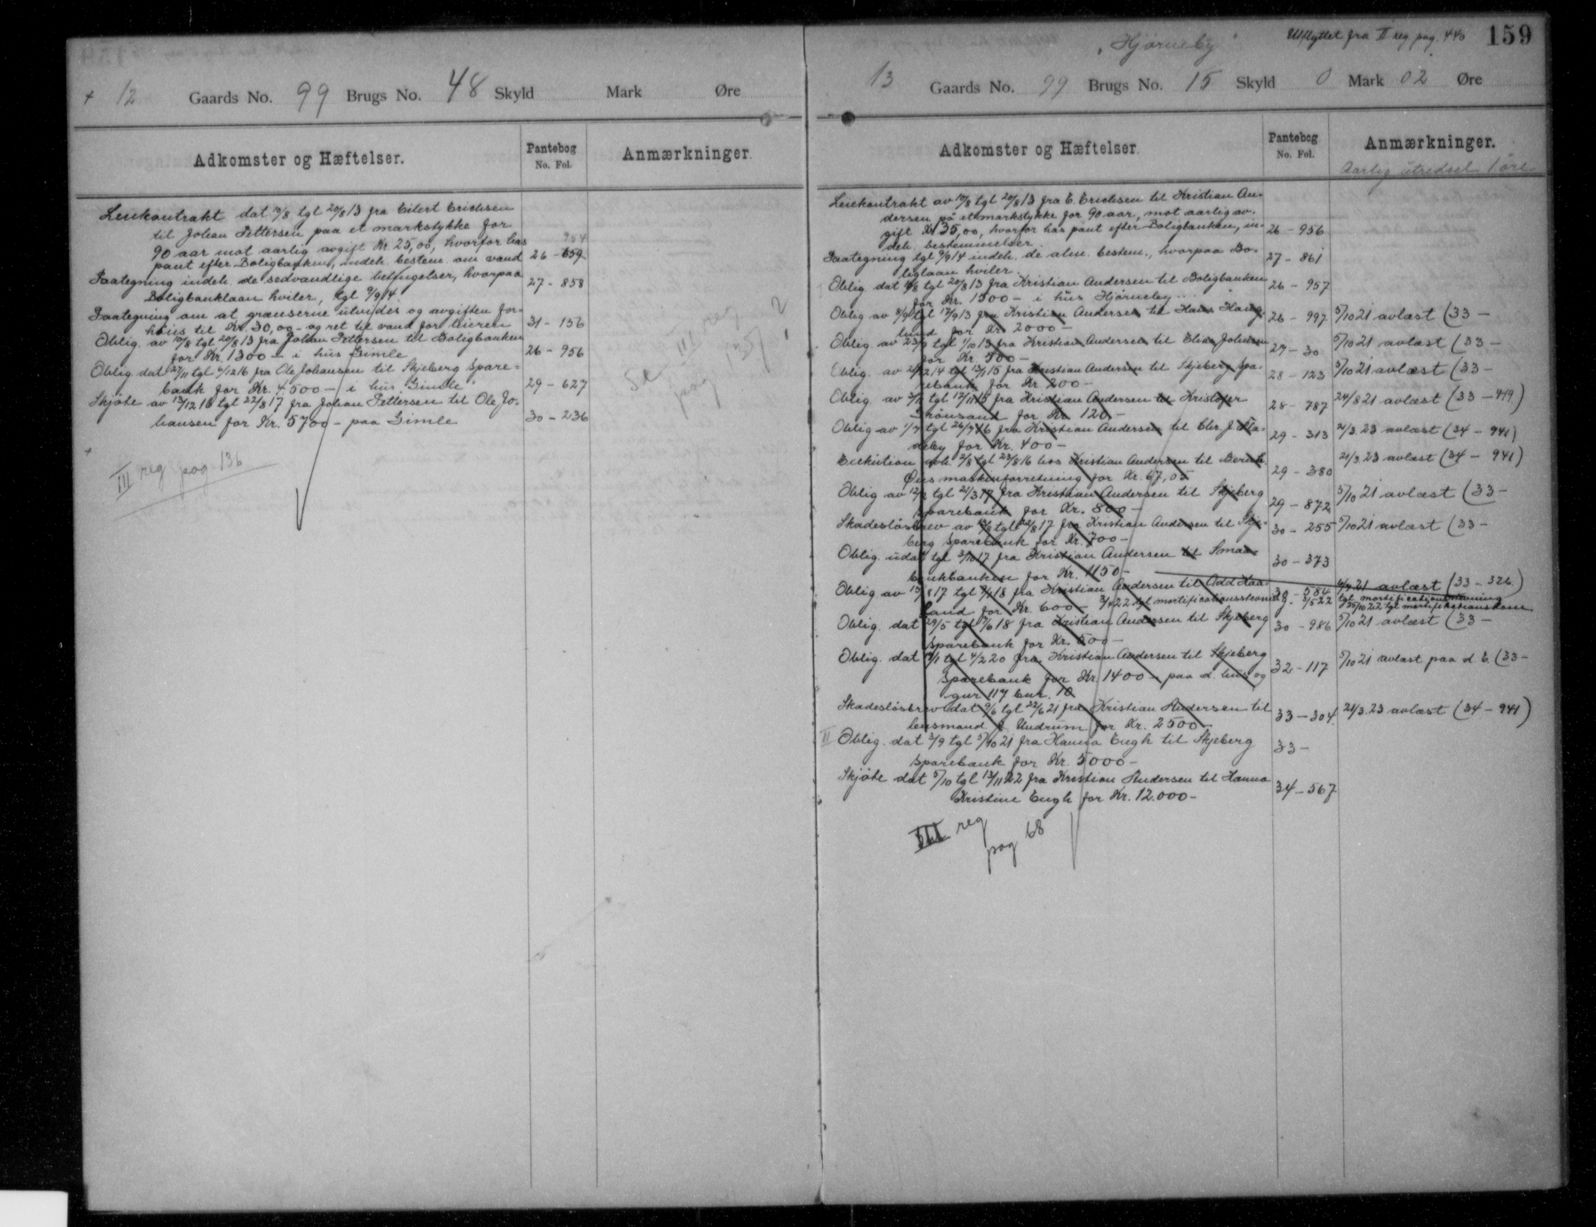 12 Gaards No. 99 Brugs No. 48 Skyld Mark Øre
Adkomster og Hæftelser.
Pantebog
No. Fol.
Anmærkninger
Leiekontrakt dat 19/8 tgl 20/8 13 fra Eilert Erichsen
til Johan Pettersen paa et markstykke for
90 aar mot aarlig avgift Kr. 25,00, hvorfor has 954
pant efter Boligbanken, indeh. bestem om vand 26 - 659
Paategning indeh. de sedvandlige betingelser, hvorpaa 27 - 858
Boligbanklaan hviler, tgl 9/9 14
Paategning om at grænserne utvides og avgiften for-
høies til Kr. 30,00 - og ret til vand for eieren 31 - 156
Oblig. av 19/8 tgl 20/8 13 fra Johan Pettersen til Boligbanken
for Kr. 1300 - i hus Gimle 26 - 956
Oblig dat 27/11 tgl 4/12 16 fra Ole Johansen til Skjeberg Spare-
bank for Kr. 4500 - i hus "Gimle" 29 - 627
Skjøte av 13/12 16 tgl 22/8 17 fra Johan Pettersen til Ole Jo-
hansen for Kr. 5700 - paa Gimle 30 - 236
III reg pag. 136
Se III reg
pag 151
"Hjørneby" Utflyttet fra II reg. pag. 440 159
13 Gaards No. 99 Brugs No. 15 Skyld 0 Mark 02 Øre
Adkomster og Hæftelser
Pantebog
No. Fol.
Anmærkninger.
Aarlig utredsel 1 øre
Leiekontrakt av 19/8 tgl 20/8 13 fra E. Erichsen til Kristian An-
dersen på et markstykke for 90 aar, mot aarlig av-
gift Kr 35,00, hvorfor has pant efter Boligbanken, in- 26 - 956
deh. bestemmelser
Paategning tgl 9/9 14 indeh. de alm. bestem., hvorpaa Bo- 27 - 861
liglaan hviler.
Oblig dat 19/8 tgl 20/8 13 fra Kristian Andersen til Boligbanken 26 - 957
for Kr. 1500 - i hus Hjørneby
Oblig av 9/9 tgl 17/9 13 fra Kristian Andersen til Hans Haug- 26 - 997 5/10 21 avlæst (33 -
lund for Kr 2000 -
Oblig av 23/9 tgl 1/10 13 fra Kristian Andersen til Elias Johansen 27 - 30 5/10 21 avlæst (33 -
for Kr. 500 -
Oblig. av 21/12 14 tgl 13/1 15 fra Kristian Andersen til Skjeberg Spa- 28 - 123 5/10 21 avlæst (33 -
rebank for Kr 200 -
Oblig av tgl 12/11 15 fra Kristian Andersen til Kristofer 28 - 787 24/8 21 avlæst (33 - 419)
Grønsand for Kr 120 -
Oblig av 1/7 tgl 26/7 16 fra Kristian Andersen til Chr. J. 29 - 313 21/3 23 avlæst (34 - 941)
for Kr. 400 -
Exekution avh. 2/8 tgl 23/8 16 hos Kristian Andersen til 29 - 380 21/3 23 avlæst (34 - 941)
maskinforretning for Kr. 67,05
Oblig av 12/2 tgl 21/3 17 fra Kristian Andersen til Skjeberg 29 - 872 5/10 21 avlæst (33 -
Sparebank for Kr. 800 -
Skadesløsbrev av tgl 22/8 17 fra Kristian Andersen til Skje- 30 - 255 5/10 21 avlæst (33 -
berg Sparebank for Kr. 700 -
Oblig. udat tgl 2/10 17 fra Kristian Andersen til Smaa- 30 - 373
brukbanken for Kr. 1150 -
Oblig av 17 tgl 18 fra Kristian Andersen til Odd Haa- 30 - 554 21 avlæst (33 - 326)
land for Kr. 600 - 22 tgl mortifications 22 tgl mortifications
22 tgl mortifikationsdom
Oblig. dat 29/5 tgl 18 fra Kristian Andersen til Skjeberg 30 - 986 5/10 21 avlæst (33 -
Sparebank for Kr. 500 -
Oblig. dat tgl 4/2 20 fra Kristian Andersen til Skjeberg 32 - 117 5/10 21 avlæst paa d. b. (33 -
Sparebank for Kr 1400 - paa d. hus og
gnr 117 bnr. 10
Skadesløsbrev dat 9/6 tgl 22/6 21 fra Kristian Andersen til 33 - 304 21/3 23 avlæst (34 - 941)
lensmand Undrum for Kr. 2500 -
II Oblig. dat 3/9 tgl 5/10 21 fra Hanna Engh til Skjeberg 33 -
Sparebank for Kr. 5000 -
Skjøte dat 5/10 tgl 13/11 22 fra Kristian Andersen til Hanna 34 - 567
Kristine Engh for Kr. 12.000 -
III reg
pag 68